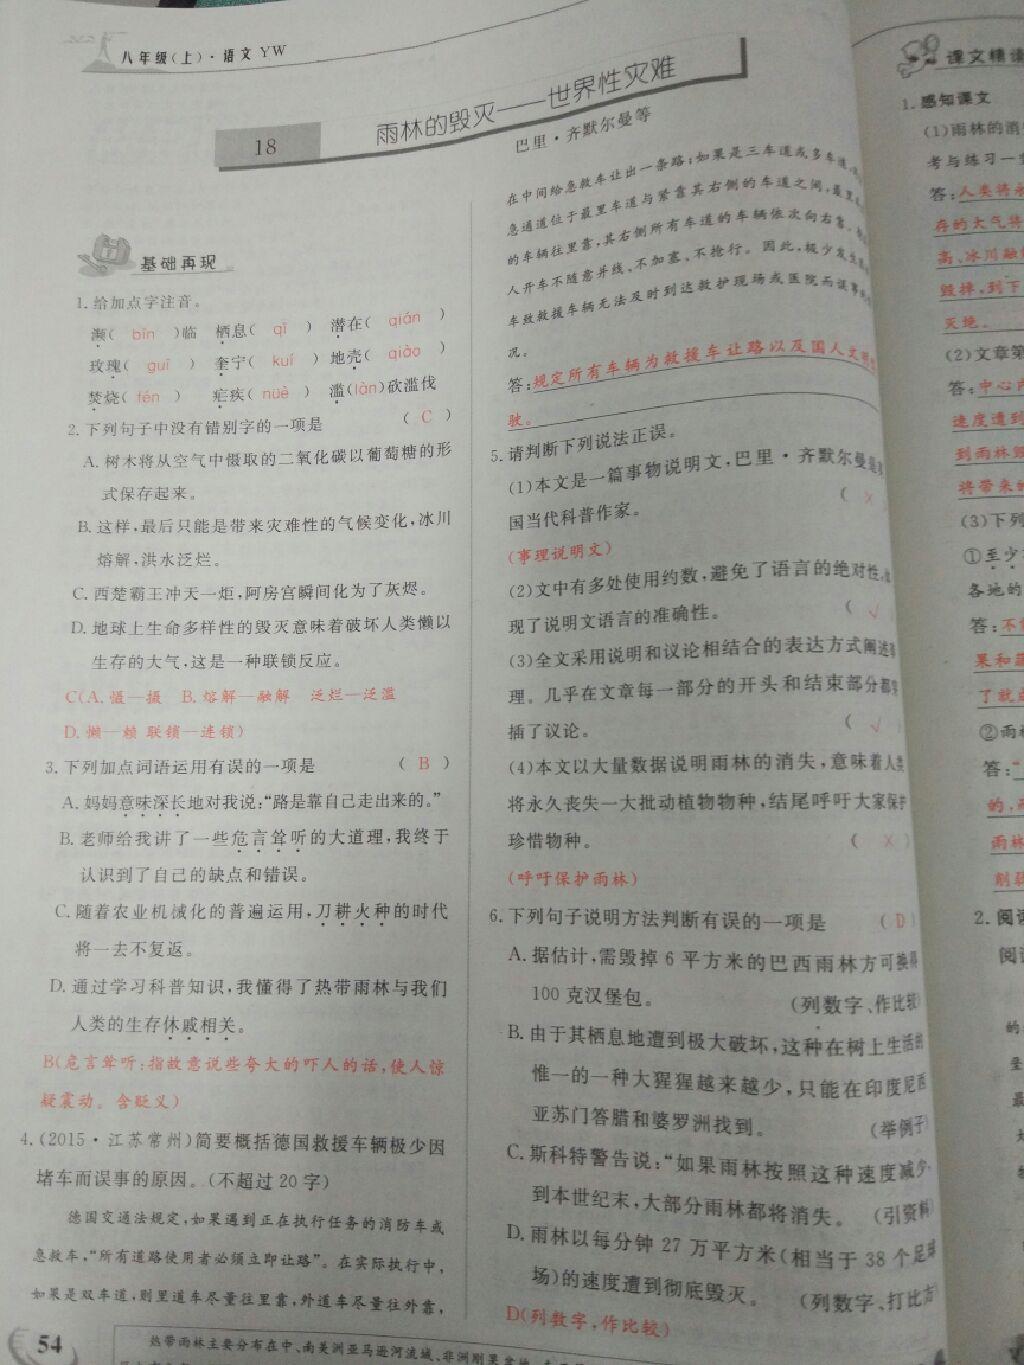 八年级(上)·语文 YW
18
雨林的毁灭——世界性灾难
巴里·齐默尔曼等
基础再现
1.给加点字注音。
濒( bīn )临 栖息( qī ) 潜在( qián )
玫瑰( guī ) 奎宁( kuí ) 地壳( qiào )
焚烧( fén ) 疟疾( nüè ) 滥(làn)砍滥伐
2.下列句子中没有错别字的一项是 ( C )
A.树木将从空气中慑取的二氧化碳以葡萄糖的形
式保存起来。
B.这样,最后只能是带来灾难性的气候变化,冰川
熔解,洪水泛烂。
C.西楚霸王冲天一炬,阿房宫瞬间化为了灰烬。
D.地球上生命多样性的毁灭意味着破坏人类懒以
生存的大气,这是一种联锁反应。
C(A.慑—摄 B.熔解—融解 泛烂—泛滥
D.懒—赖 联锁—连锁)
3.下列加点词语运用有误的一项是 ( B )
A.妈妈意味深长地对我说:“路是靠自己走出来的。”
B.老师给我讲了一些危言耸听的大道理,我终于
认识到了自己的缺点和错误。
C.随着农业机械化的普遍运用,刀耕火种的时代
将一去不复返。
D.通过学习科普知识,我懂得了热带雨林与我们
人类的生存休戚相关。
B(危言耸听:指故意说些夸大的吓人的话,使人惊
疑震动。含贬义)
4.(2015·江苏常州)简要概括德国救援车辆极少因
堵车而误事的原因。(不超过20字)
德国交通法规定,如果遇到正在执行任务的消防车或
急救车,“所有道路使用者必须立即让路”。在实际执行中,
如果是双车道,则里道车尽量往里靠,外道车尽量往外靠,
54
热带雨林主要分布在中、南美洲亚马逊河流域、非洲刚果盆地
在中间给急救车让出一条路;如果是三车道或多车道,
急通道位于最里车道与紧靠其右侧的车道之间,最里
的车辆往里靠,其右侧所有车道的车辆依次向右靠。
人开车不随意并线,不加塞,不抢行。因此,极少发生
车致救援车辆无法及时到达救护现场或医院而误事的
况。
答:规定所有车辆为救援车让路以及国人文明
驶。
5.请判断下列说法正误。
(1)本文是一篇事物说明文,巴里·齐默尔曼是
国当代科普作家。 ( × )
(事理说明文)
(2)文中有多处使用约数,避免了语言的绝对性,
现了说明文语言的准确性。 ( √ )
(3)全文采用说明和议论相结合的表达方式阐述事
理。几乎在文章每一部分的开头和结束部分都穿
插了议论。 ( √ )
(4)本文以大量数据说明雨林的消失,意味着人类
将永久丧失一大批动植物物种,结尾呼吁大家保护
珍惜物种。 ( × )
(呼吁保护雨林)
6.下列句子说明方法判断有误的一项是 ( D )
A.据估计,需毁掉6平方米的巴西雨林方可换得
100克汉堡包。 (列数字、作比较)
B.由于其栖息地遭到极大破坏,这种在树上生活的
惟一的一种大猩猩越来越少,只能在印度尼西
亚苏门答腊和婆罗洲找到。 (举例子)
C.斯科特警告说:“如果雨林按照这种速度减少,
到本世纪末,大部分雨林都将消失。 (引资料)
D.雨林以每分钟27万平方米(相当于38个足球
场)的速度遭到彻底毁灭。 (列数字、打比方)
D(列数字,作比较)
课文精读
1.感知课文
(1)雨林的消
考与练习一
答:人类将永
存的大气将
高、冰川融
毁掉,到下
灭绝。
(2)文章第
答:中心内
速度遭到
到雨林毁
将带来的
(3)下列
①至少
各地的
答:不
果和
了就
②雨林
答:“
的,
雨林
削弱
2.阅读
阅读
的